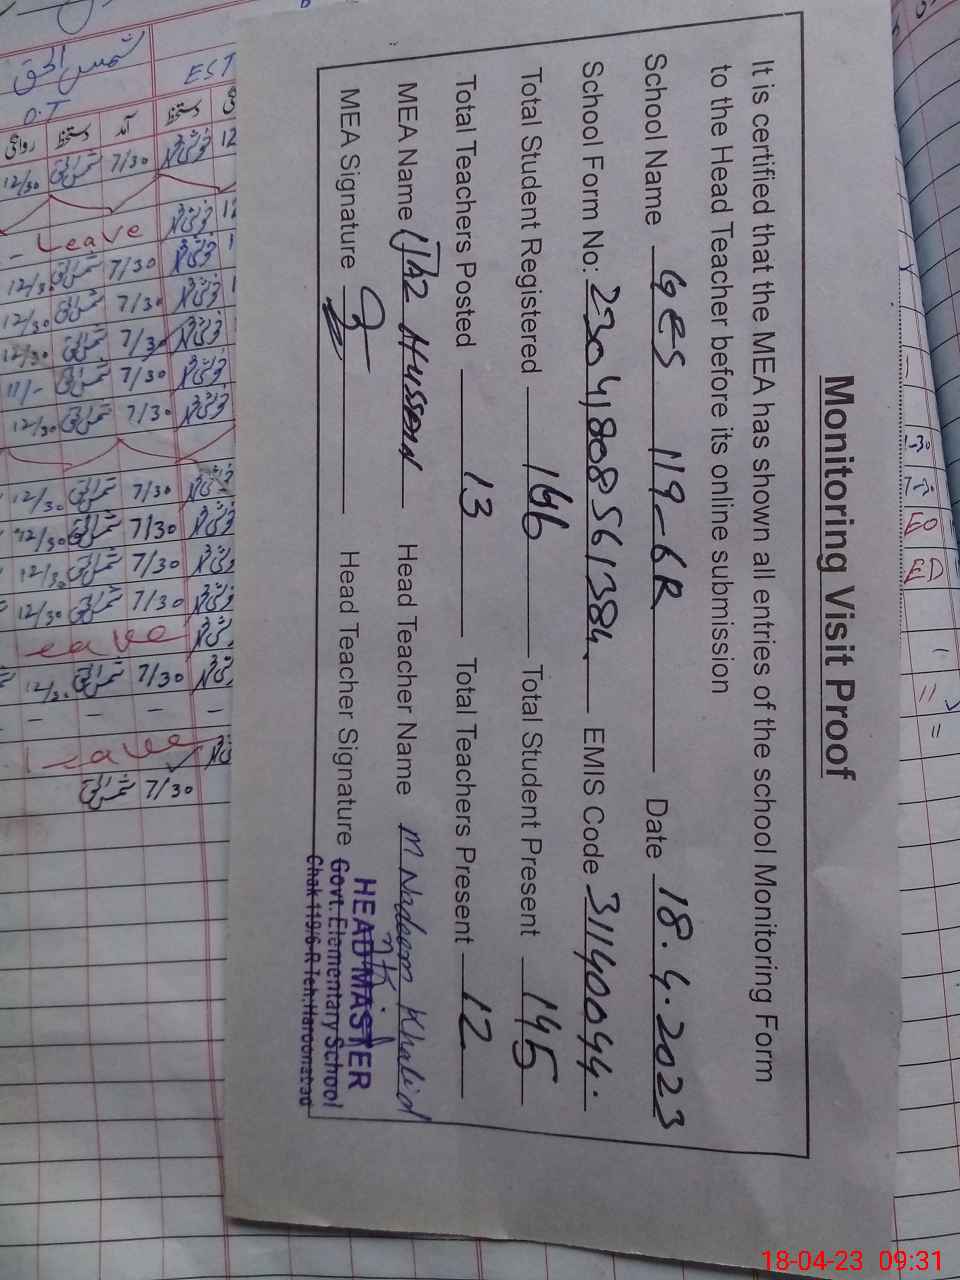 Monitoring Visit Proof
It is certified that the MEA has shown all entries of the school Monitoring Form
to the Head Teacher before its online submission
School Name GES 119-6R Date 18.4.2023
School Form No: 23041808561384. EMIS Code 31140044.
Total Student Registered Total Student Present 145
Total Teachers Posted 13 Total Teachers Present 12
MEA Name Hussen Head Teacher Name M Nadeem Khalid
MEA Signature Head Teacher Signature
HEAD MASTER
Govt. Elementary School
Chak 119/6-R Teh. Haroonabad
شمس الحق
EST
O.T
روانگی دستخط آمد دستخط
12/30 7/30
Leave
12/30 7/30
12/30 7/30
12/30 7/30
11/- 7/30
12/30 7/30
12/30 7/30
12/30 7/30
12/30 7/30
12/30 7/30
eave
12/30 7/30
Leave
7/30
EO
ED
18-04-23 09:31